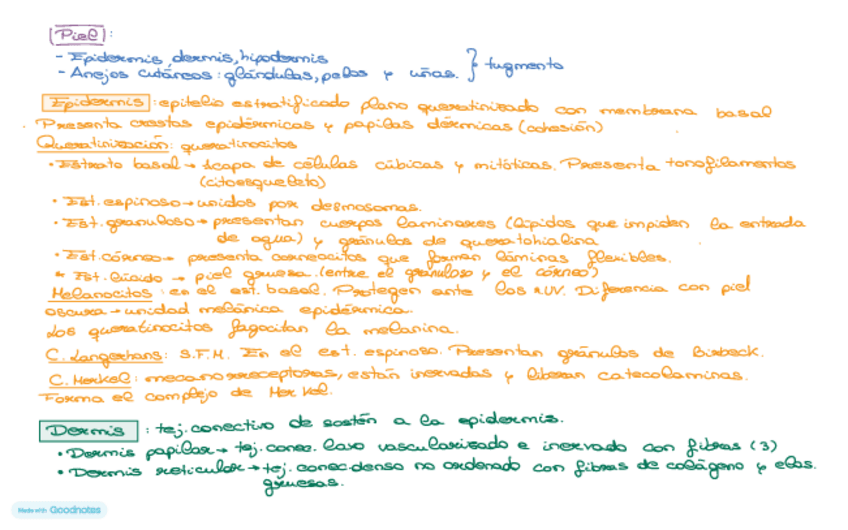 Piel:
- Epidermis, dermis, hipodermis
- Anejos cutáneos: glándulas, pelos y uñas. } tugmento
Epidermis: epitelio estratificado plano queratinizado con membrana basal
Presenta crestas epidérmicas y papilas dérmicas (cohesión)
Queratinización: queratinocitos
• Estrato basal → 1 capa de células cúbicas y mitóticas. Presenta tonofilamentos
(citoesqueleto)
• Est. espinoso → unidos por desmosomas.
• Est. granuloso → presentan cuerpos laminares (lípidos que impiden la entrada
de agua) y gránulos de queratohialina
• Est. córneo → presenta corneocitos que forman láminas flexibles.
* Est. lúcido → piel gruesa. (entre el granuloso y el córneo)
Melanocitos: en el est. basal. Protegen ante los r.UV. Diferencia con piel
oscura → unidad melánica epidérmica.
Los queratinocitos fagocitan la melanina.
C. Langerhans: S.F.M. En el est. espinoso. Presentan gránulos de Birbeck.
C. Merkel: mecanorreceptoras, están inervadas y liberan catecolaminas.
Forma el complejo de Merkel.
Dermis: tej. conectivo de sostén a la epidermis.
• Dermis papilar → tej. conec. laxo vascularizado e inervado con fibras (3)
• Dermis reticular → tej. conec denso no ordenado con fibras de colágeno y elas.
gruesas.
Made with Goodnotes